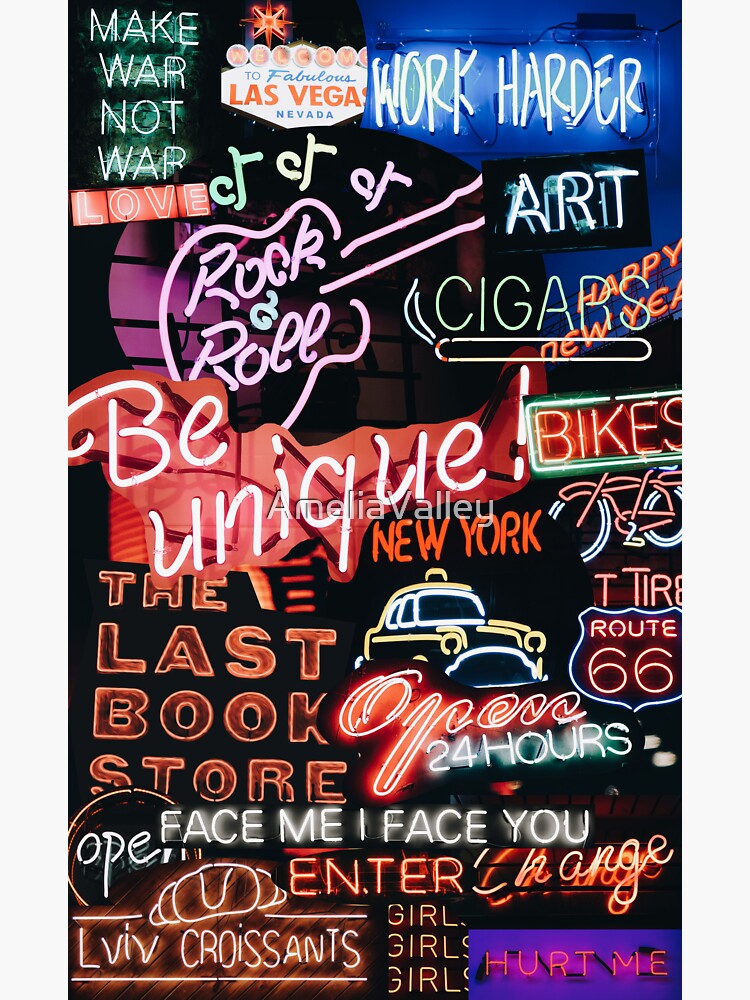 MAKE
WAR
NOT
WAR
LOVE
WELCOME
TO Fabulous
LAS VEGAS
NEVADA
WORK HARDER
ART
Rock
&
Roll
CIGARS
HAPPY
NEW YEA
Be
unique!
BIKES
AmeliaValley
NEW YORK
THE
LAST
BOOK
STORE
T TIRE
ROUTE
66
Open
24 HOURS
FACE ME I FACE YOU
ope
ENTER
change
LViV CROiSSANTS
GIRLS
GIRLS
GIRLS
HURT ME